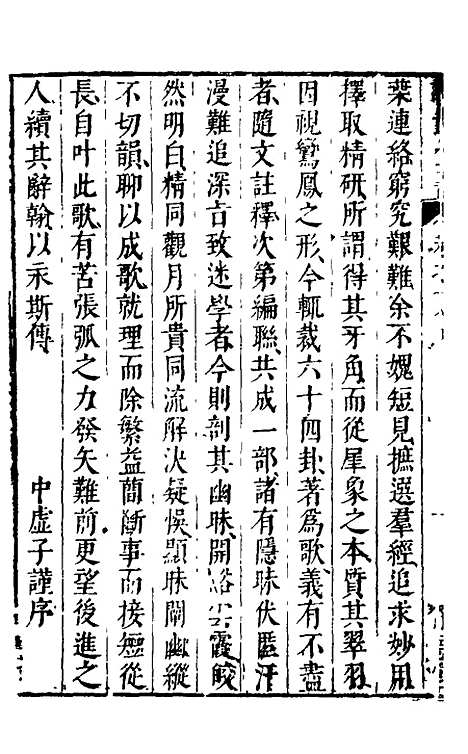 葉連絡窮究艱難余不媿短見摭選羣經追求妙用
擇取精研所謂得其牙角而從犀象之本質其翠羽
因視鸞鳳之形今輒裁六十四卦著爲歌義有不盡
者隨文註釋次第編聯共成一部諸有隱昧伏匿汗
漫難追深言致迷學者今則剖其幽昧開谿雲霞皎
然明白精同觀月所貴同流解決疑悞顯昧闡幽縱
不切韻聊以成歌就理而除繁益簡斷事而接短從
長自叶此歌有苦張弧之力發矢難前更望後進之
人續其辭翰以永斯傳
中虛子謹序